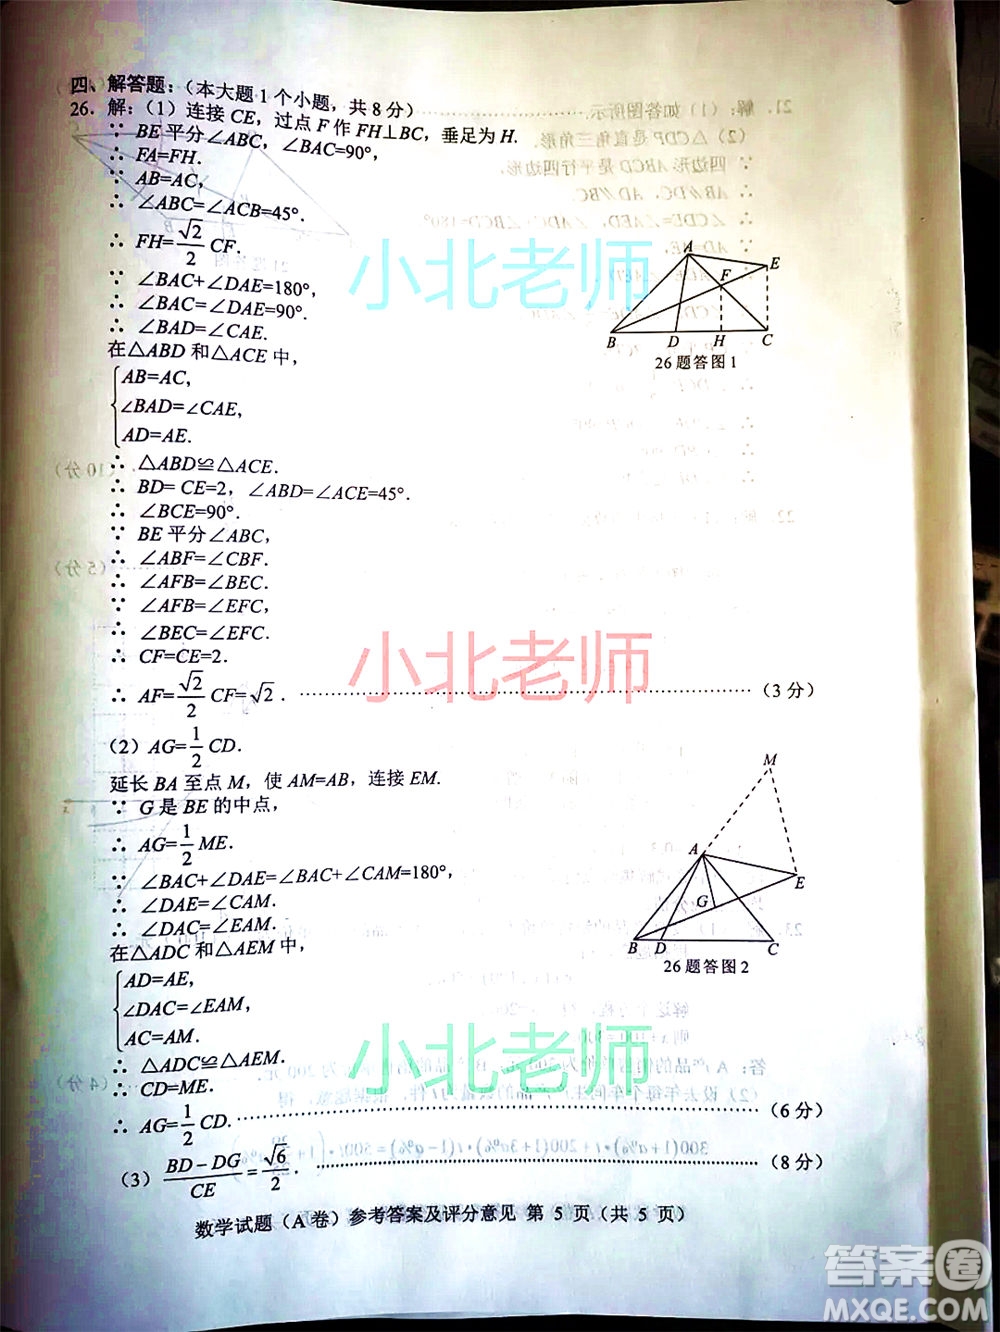 四、解答题：（本大题1个小题，共8分）
26．解：（1）连接CE，过点F作FH⊥BC，垂足为H．
∵ BE平分∠ABC，∠BAC=90°，
∴ FA=FH．
∵ AB=AC，
∴ ∠ABC=∠ACB=45°．
∴ FH=√2/2 CF．
∵ ∠BAC+∠DAE=180°，
∴ ∠BAC=∠DAE=90°．
∴ ∠BAD=∠CAE．
在△ABD和△ACE中，
AB=AC，
∠BAD=∠CAE，
AD=AE．
∴ △ABD≌△ACE．
∴ BD= CE=2，∠ABD=∠ACE=45°．
∴ ∠BCE=90°．
∵ BE平分∠ABC，
∴ ∠ABF=∠CBF．
∴ ∠AFB=∠BEC．
∵ ∠AFB=∠EFC，
∴ ∠BEC=∠EFC．
∴ CF=CE=2．
∴ AF=√2/2 CF=√2．……（3分）
A
E
F
B D H C
26题答图1
（2）AG=1/2 CD．
延长BA至点M，使AM=AB，连接EM．
∵ G是BE的中点，
∴ AG=1/2 ME．
∵ ∠BAC+∠DAE=∠BAC+∠CAM=180°，
∴ ∠DAE=∠CAM．
∴ ∠DAC=∠EAM．
在△ADC和△AEM中，
AD=AE，
∠DAC=∠EAM，
AC=AM．
∴ △ADC≌△AEM．
∴ CD=ME．
∴ AG=1/2 CD．……（6分）
M
A
E
G
B D C
26题答图2
（3）(BD－DG)/CE=√6/2．……（8分）
数学试题（A卷）参考答案及评分意见 第 5 页（共 5 页）
小北老师
小北老师
小北老师
答案圈
MXQE.COM